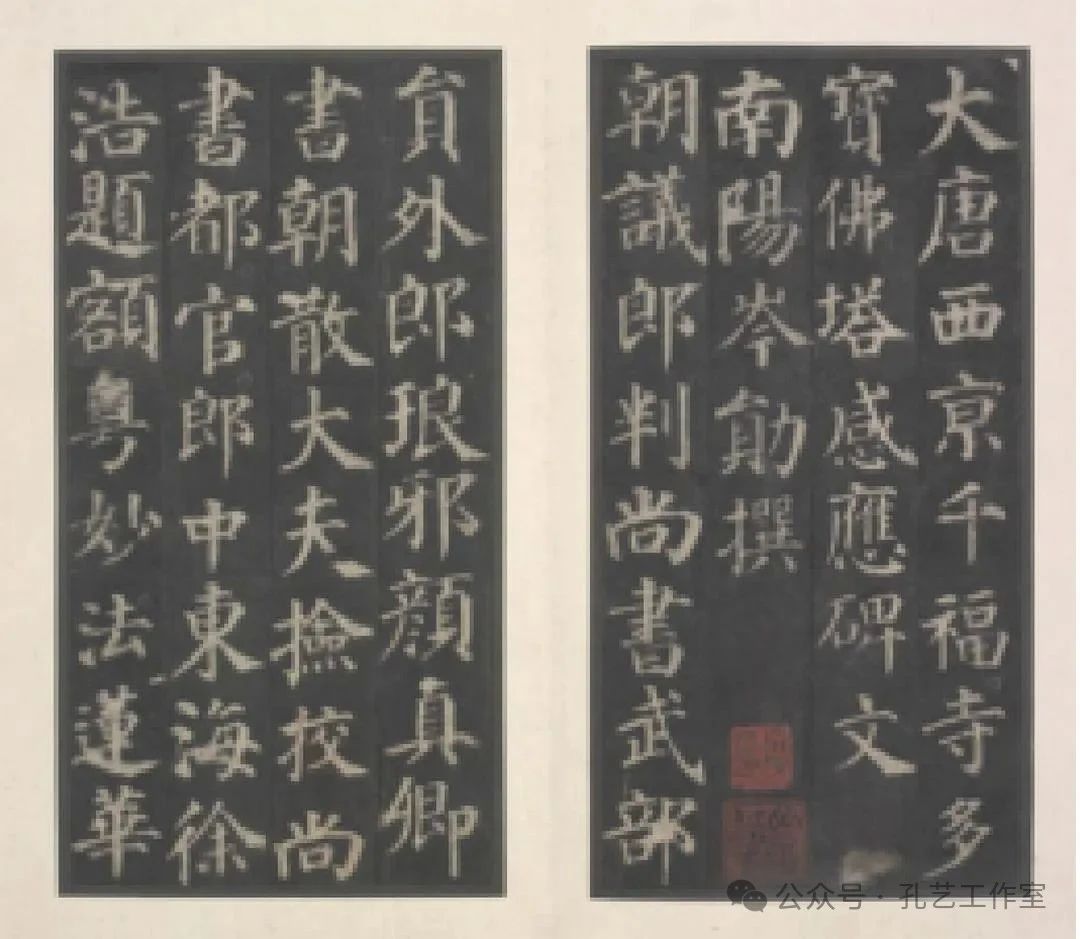 大唐西京千福寺多
寶佛塔感應碑文
南陽岑勛撰
朝議郎判尚書武部
負外郎琅邪顔真卿
書朝散大夫撿挍尚
書都官郎中東海徐
浩題額粤妙法蓮華
公众号·孔艺工作室